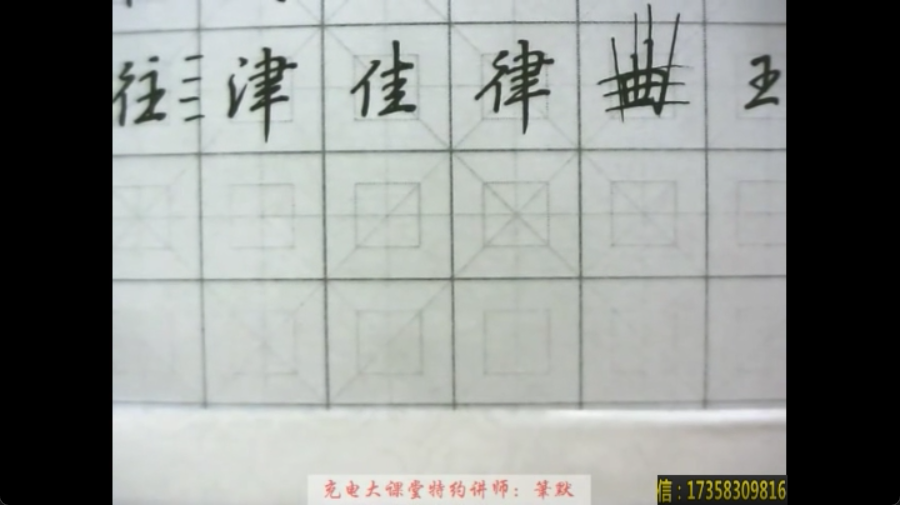 往 津 佳 律 曲 王
充电大课堂特约讲师：笔默
信：17358309816